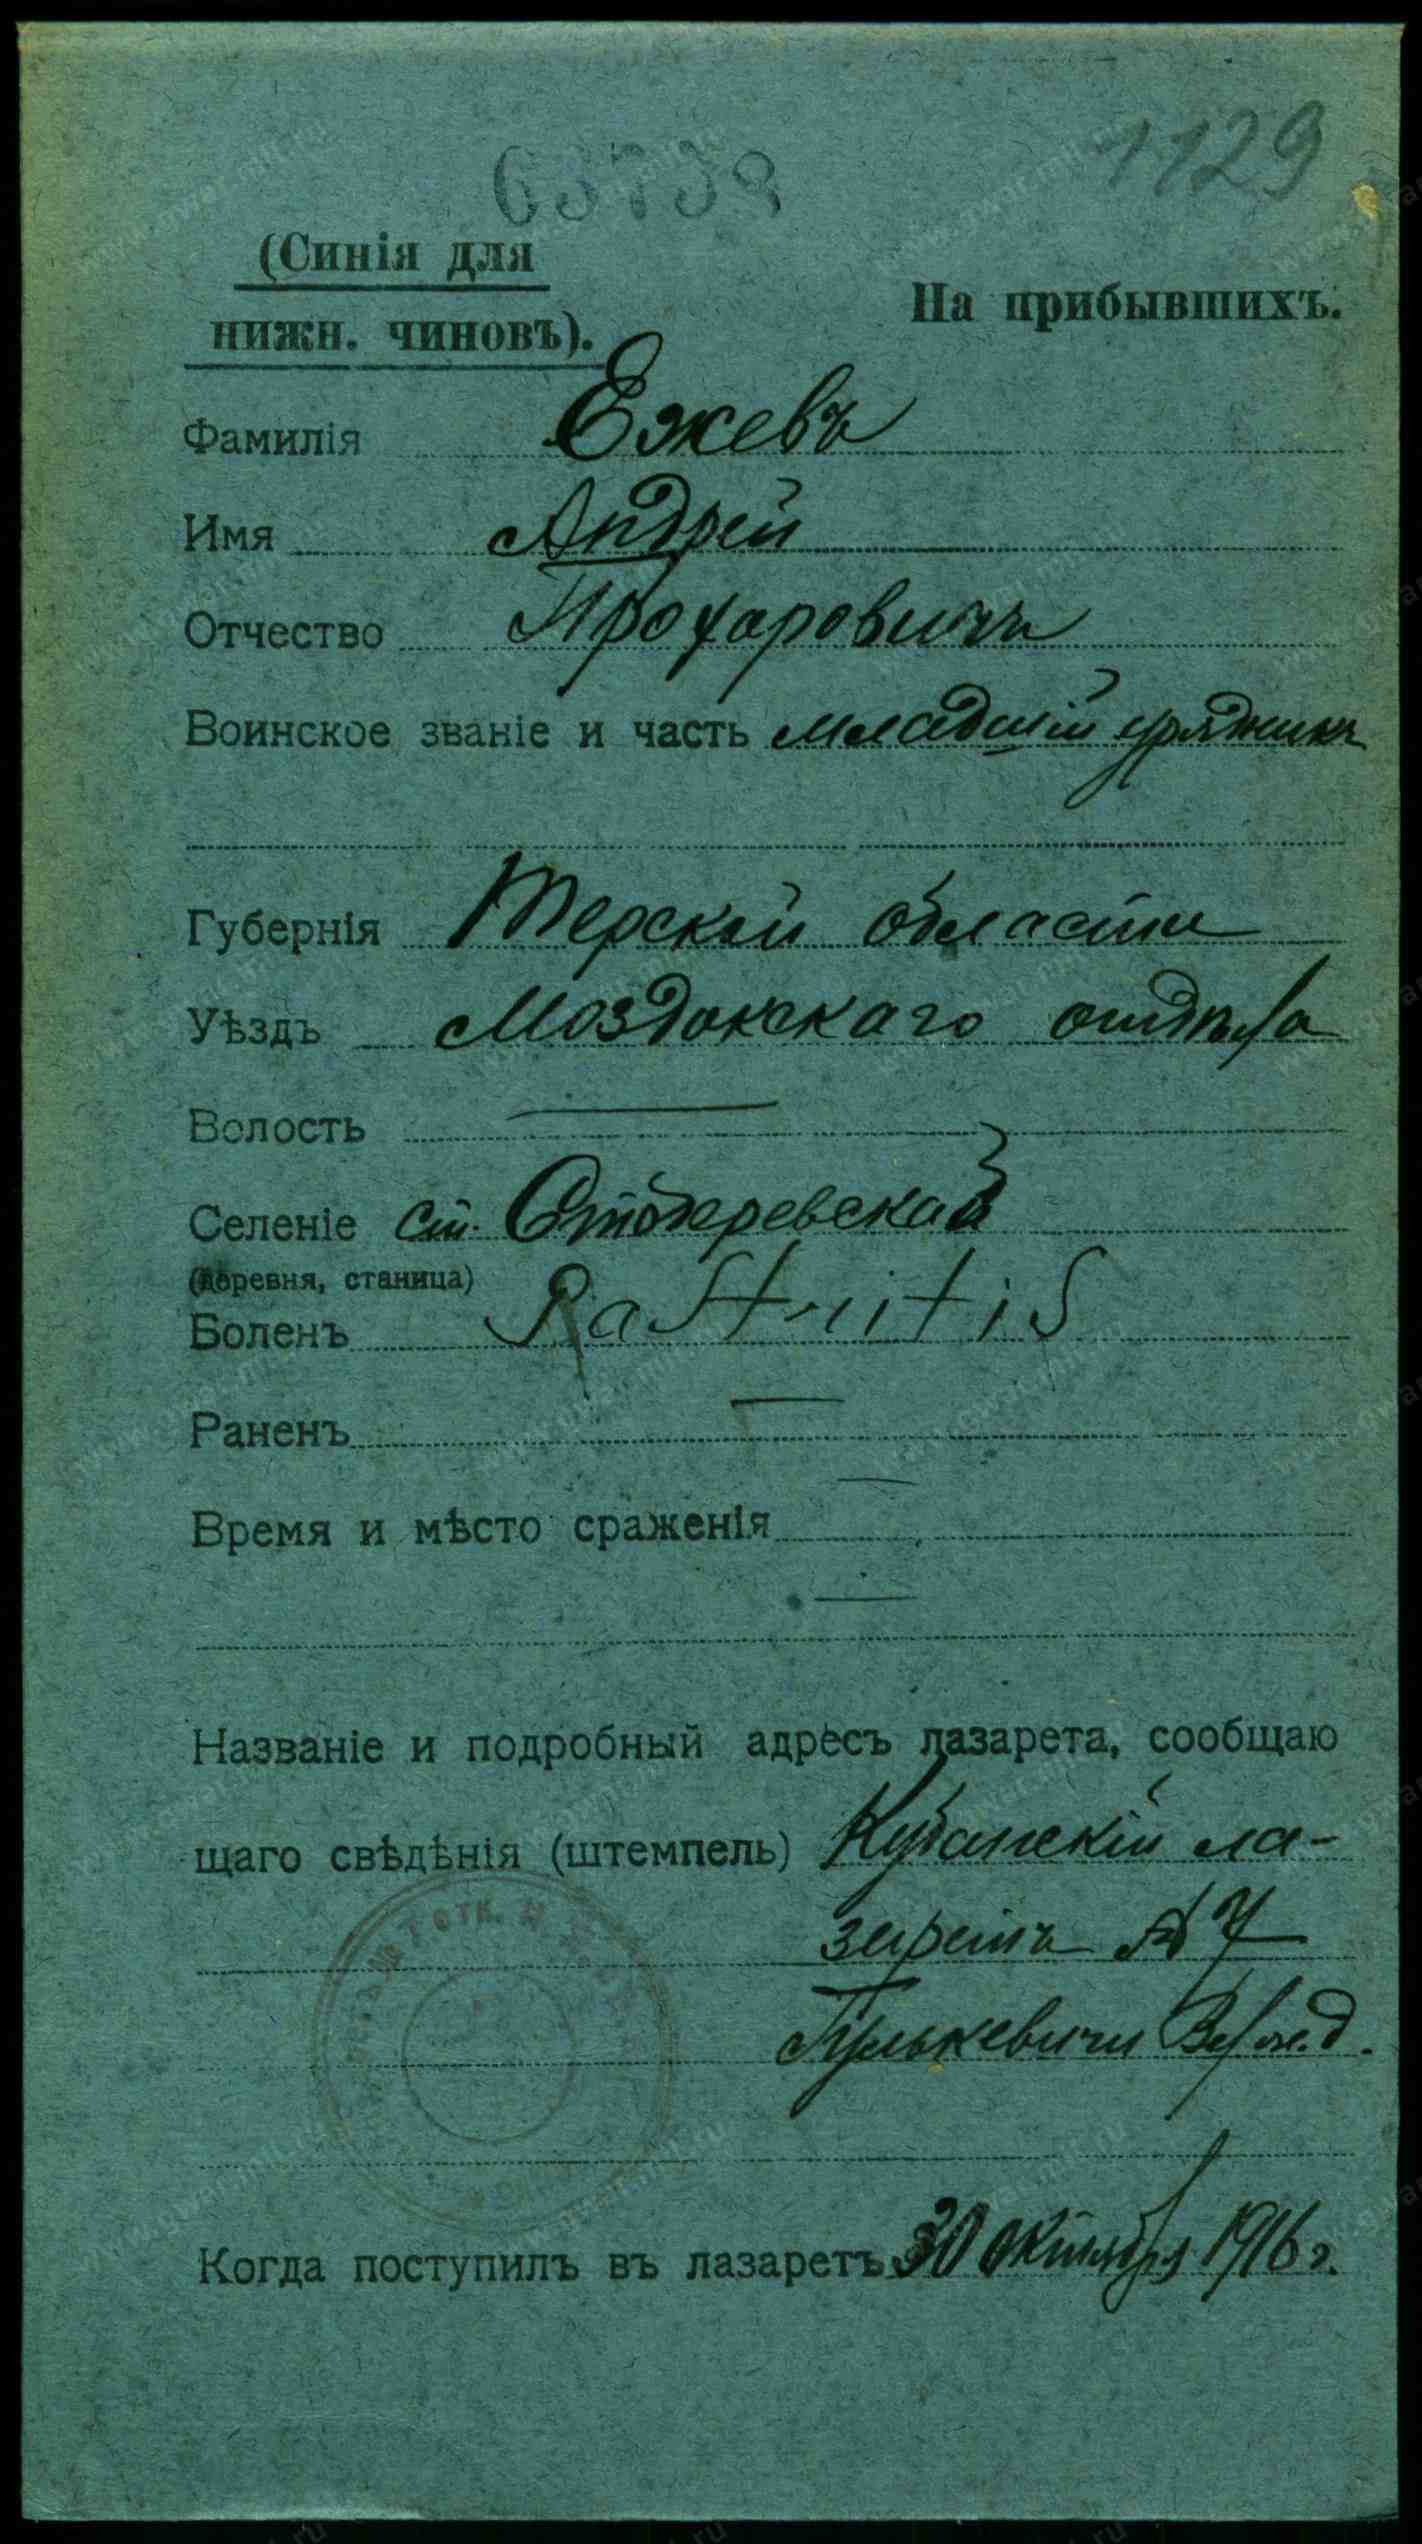 1129
(Синія для
нижн. чиновъ).
На прибывшихъ.
Фамилія Ежевъ
Имя Андрей
Отчество Прохаровичъ
Воинское званіе и часть младшій урядникъ
Губернія Терской области
Уѣздъ Моздокскаго отдѣла
Волость —
Селеніе ст. Стодеревская
(деревня, станица)
Боленъ
Раненъ —
Время и мѣсто сраженія —
—
Названіе и подробный адресъ лазарета, сообщаю
щаго свѣдѣнія (штемпель) Кубанскій ла-
заретъ № 7
Гулькевичи Вл. ж. д.
Когда поступилъ въ лазаретъ 30 октября 1916 г.